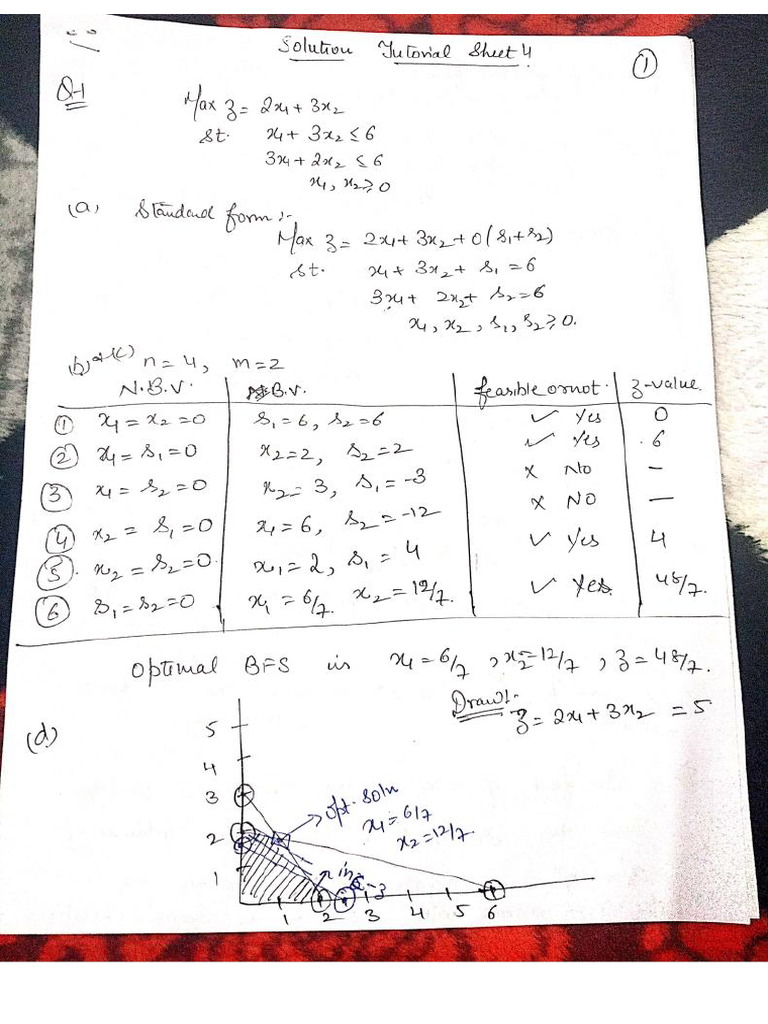 Solution Tutorial Sheet 4
①
Q-1
Max z = 2x₁ + 3x₂
st. x₁ + 3x₂ ≤ 6
3x₁ + 2x₂ ≤ 6
x₁, x₂ ≥ 0
(a) Standard form :-
Max z = 2x₁ + 3x₂ + 0(s₁ + s₂)
st. x₁ + 3x₂ + s₁ = 6
3x₁ + 2x₂ + s₂ = 6
x₁, x₂, s₁, s₂ ≥ 0.
(b) & (c) n = 4, m = 2
N.B.V. B.V. feasible or not. z-value.
① x₁ = x₂ = 0 s₁ = 6, s₂ = 6 ✓ Yes 0
② x₁ = s₁ = 0 x₂ = 2, s₂ = 2 ✓ Yes 6
③ x₁ = s₂ = 0 x₂ = 3, s₁ = -3 × No —
④ x₂ = s₁ = 0 x₁ = 6, s₂ = -12 × NO —
⑤ x₂ = s₂ = 0 x₁ = 2, s₁ = 4 ✓ Yes 4
⑥ s₁ = s₂ = 0 x₁ = 6/7 x₂ = 12/7. ✓ Yes. 48/7.
Optimal BFS is x₁ = 6/7, x₂ = 12/7, z = 48/7.
Draw :-
z = 2x₁ + 3x₂ = 5
(d)
5
4
3
2
1
opt. soln
x₁ = 6/7
x₂ = 12/7
1 2 3 4 5 6